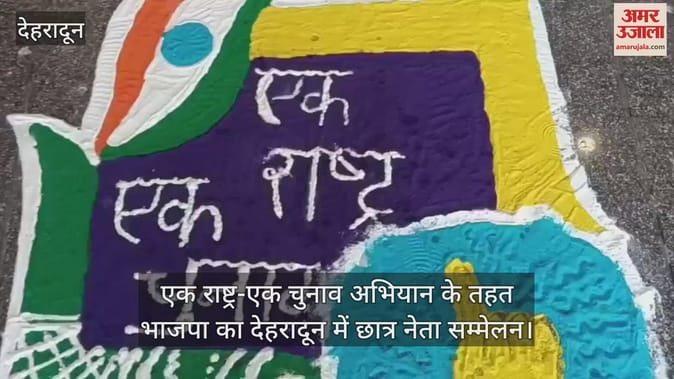 देहरादून
अमर
उजाला
amarujala.com
एक
राष्ट्र
एक
चुनाव
एक राष्ट्र-एक चुनाव अभियान के तहत
भाजपा का देहरादून में छात्र नेता सम्मेलन।